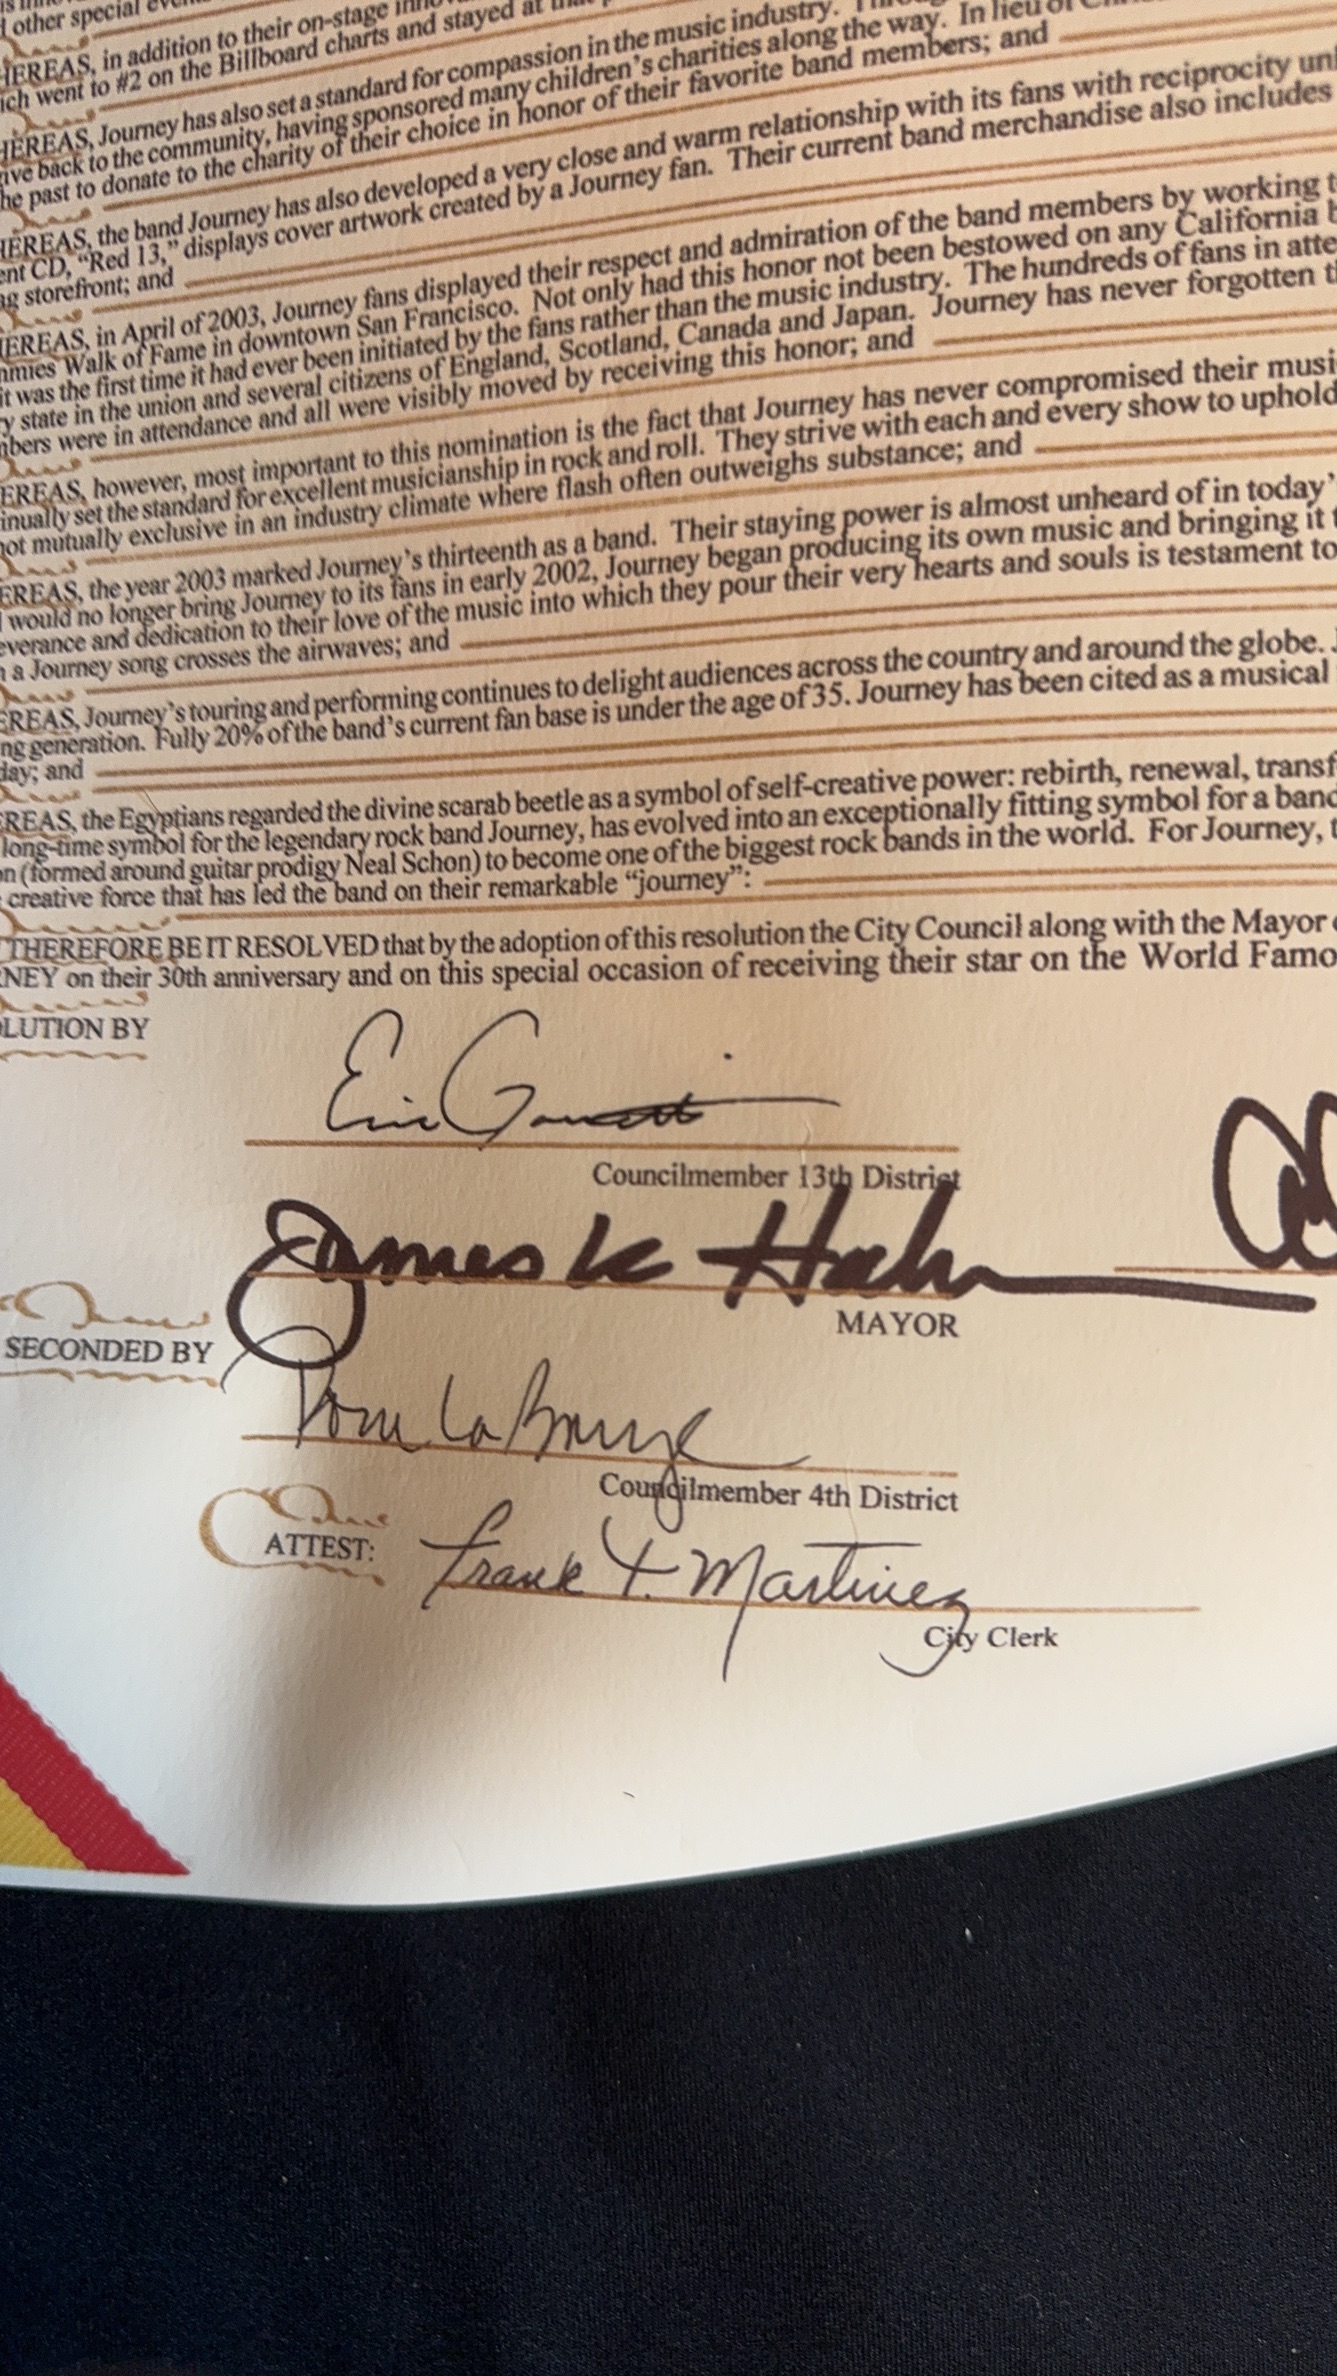 d other special
HEREAS, in addition to their on-stage
ich went to #2 on the Billboard charts and stayed at
HEREAS, Journey has also set a standard for compassion in the music industry.
ive back to the community, having sponsored many children's charities along the way. In lieu of
he past to donate to the charity of their choice in honor of their favorite band members; and
HEREAS, the band Journey has also developed a very close and warm relationship with its fans with reciprocity
ent CD, "Red 13," displays cover artwork created by a Journey fan. Their current band merchandise also includes
ng storefront; and
EREAS, in April of 2003, Journey fans displayed their respect and admiration of the band members by working
mmies Walk of Fame in downtown San Francisco. Not only had this honor not been bestowed on any California
it was the first time it had ever been initiated by the fans rather than the music industry. The hundreds of fans in
y state in the union and several citizens of England, Scotland, Canada and Japan. Journey has never forgotten
nbers were in attendance and all were visibly moved by receiving this honor; and
EREAS, however, most important to this nomination is the fact that Journey has never compromised their
inually set the standard for excellent musicianship in rock and roll. They strive with each and every show to uphold
not mutually exclusive in an industry climate where flash often outweighs substance; and
EREAS, the year 2003 marked Journey's thirteenth as a band. Their staying power is almost unheard of in today'
would no longer bring Journey to its fans in early 2002, Journey began producing its own music and bringing it
everance and dedication to their love of the music into which they pour their very hearts and souls is testament to
a Journey song crosses the airwaves; and
EREAS, Journey's touring and performing continues to delight audiences across the country and around the globe.
ng generation. Fully 20% of the band's current fan base is under the age of 35. Journey has been cited as a musical
day; and
EREAS, the Egyptians regarded the divine scarab beetle as a symbol of self-creative power: rebirth, renewal, transf
long-time symbol for the legendary rock band Journey, has evolved into an exceptionally fitting symbol for a band
on (formed around guitar prodigy Neal Schon) to become one of the biggest rock bands in the world. For Journey,
creative force that has led the band on their remarkable "journey":
THEREFORE BE IT RESOLVED that by the adoption of this resolution the City Council along with the Mayor
RNEY on their 30th anniversary and on this special occasion of receiving their star on the World Famo
OLUTION BY
Eric Garcetti
Councilmember 13th District
James K Hahn
MAYOR
SECONDED BY
Tom LaBonge
Councilmember 4th District
ATTEST:
Frank T. Martinez
City Clerk